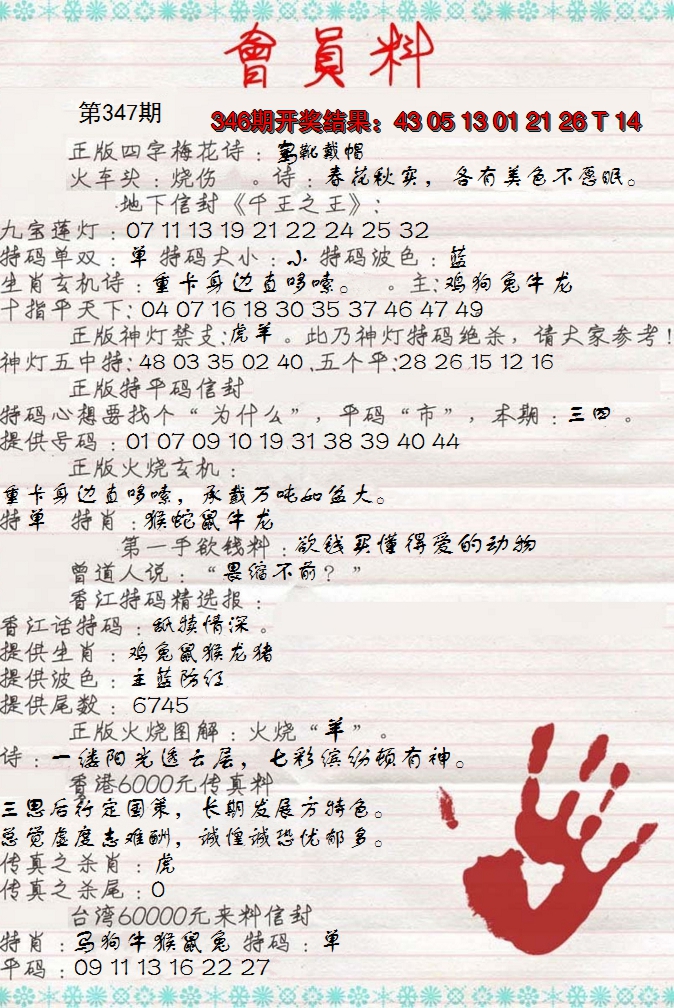 會員料
第347期
346期开奖结果：43 05 13 01 21 26 T 14
正版四字梅花诗：穿靴戴帽
火车头：烧伤 。诗：春花秋实，各有美色不愿眠。
地下信封《千王之王》：
九宝莲灯：07 11 13 19 21 22 24 25 32
特码单双：单 特码大小：小 特码波色：蓝
生肖玄机诗：重卡身边直哆嗦。 。主：鸡狗兔牛龙
十指平天下：04 07 16 18 30 35 37 46 47 49
正版神灯禁支：虎羊。此乃神灯特码绝杀，请大家参考！
神灯五中特：48 03 35 02 40 .五个平：28 26 15 12 16
正版特平码信封
特码心想要找个“为什么”，平码“市”，本期：三四。
提供号码：01 07 09 10 19 31 38 39 40 44
正版火烧玄机：
重卡身边直哆嗦，承载万吨如盆大。
特单 特肖：猴蛇鼠牛龙
第一手欲钱料：欲钱买懂得爱的动物
曾道人说：“畏缩不前？”
香江特码精选报：
香江话特码：舐犊情深。
提供生肖：鸡兔鼠猴龙猪
提供波色：主蓝防红
提供尾数：6745
正版火烧图解：火烧“羊”。
诗：一缕阳光透云层，七彩缤纷顿有神。
香港6000元传真料
三思后行定国策，长期发展方特色。
总觉虚度志难酬，诚惶诚恐忧郁多。
传真之杀肖：虎
传真之杀尾：0
台湾60000元来料信封
特肖：马狗牛猴鼠兔 特码：单
平码：09 11 13 16 22 27